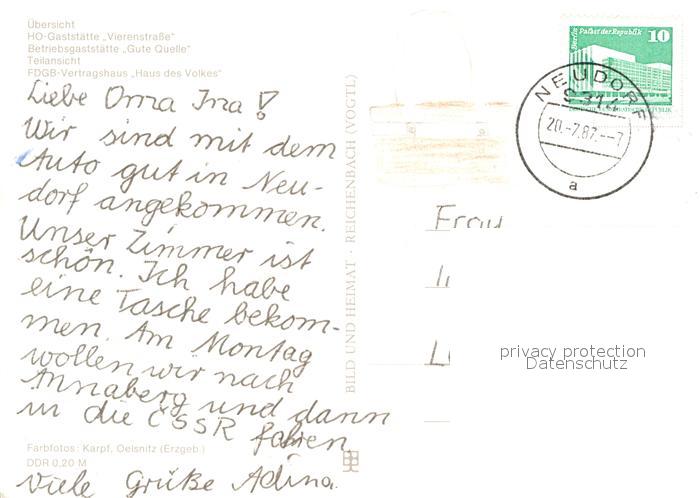 Übersicht
HO-Gaststätte „Vierenstraße“
Betriebsgaststätte „Gute Quelle“
Teilansicht
FDGB-Vertragshaus „Haus des Volkes“
Liebe Oma Ina!
Wir sind mit dem
Auto gut in Neu-
dorf angekommen.
Unser Zimmer ist
schön. Ich habe
eine Tasche bekom-
men. Am Montag
wollen wir nach
Annaberg und dann
in die ČSSR fahren.
Viele Grüße Adina.
Farbfotos: Karpf, Oelsnitz (Erzgeb.)
DDR 0,20 M
BILD UND HEIMAT · REICHENBACH (VOGTL)
Berlin Palast der Republik 10
NEUDORF
9314
20.-7.87.--7
a
Frau
privacy protection
Datenschutz